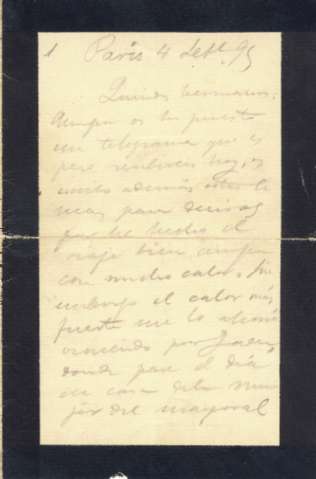 1 París 4 Sete. 95
Queridos hermanos:
Aunque os he puesto
un telegrama que es
pero recibireis hoy, os
escribo además estas lí
neas para deciros
que he hecho el
viaje bien aunque
con mucho calor. Sin
embargo el calor más
fuerte me lo
por
donde pasé el día
en casa de la
del mayoral